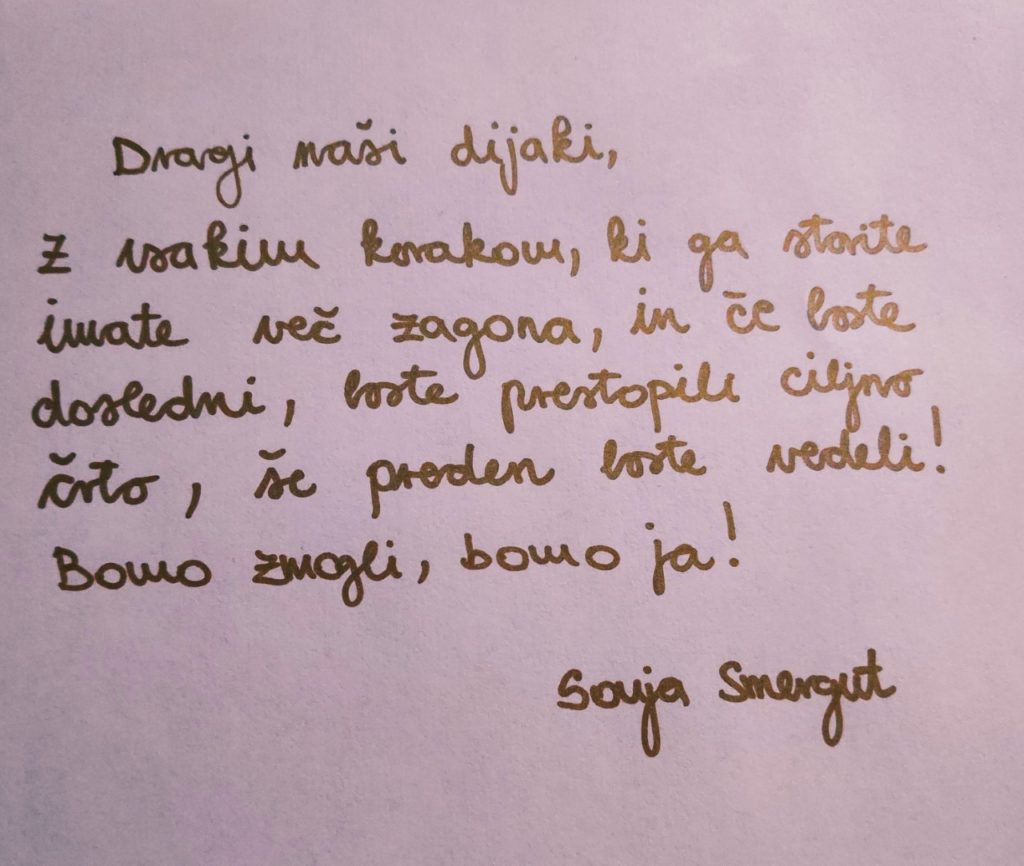 Dragi naši dijaki,
z vsakim korakom, ki ga storite
imate več zagona, in če boste
dosledni, boste prestopili ciljno
črto, še preden boste vedeli!
Bomo zmogli, bomo ja!
Sonja Smergut